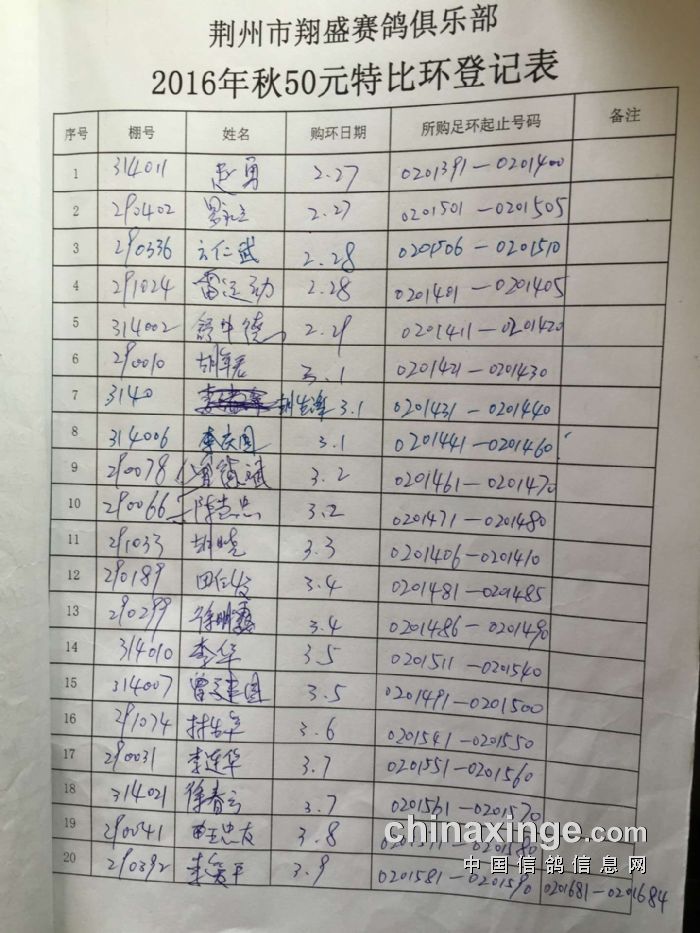 荆州市翔盛赛鸽俱乐部
2016年秋50元特比环登记表
序号 棚号 姓名 购环日期 所购足环起止号码 备注
1 314011 赵勇 2.27 0201391—0201400
2 290402 2.27 0201501—0201505
3 290336 云仁武 2.28 0201506—0201510
4 291024 雷运动 2.28 0201401—0201405
5 314002 舒中德 2.29 0201411—0201420
6 290010 胡军君 3.1 0201421—0201430
7 3140 3.1 0201431—0201440
8 314006 李庆国 3.1 0201441—0201460
9 290078 3.2 0201461—0201470
10 290066 陈志忠 3.2 0201471—0201480
11 291033 胡晓 3.3 0201406—0201410
12 290189 田仁发 3.4 0201481—0201485
13 290299 3.4 0201486—0201490
14 314010 李华 3.5 0201511—0201540
15 314007 曾建国 3.5 0201491—0201500
16 291074 3.6 0201541—0201550
17 290031 李连华 3.7 0201551—0201560
18 314021 徐春云 3.7 0201561—0201570
19 290041 忠友 3.8
20 290392 李美平 3.9 0201581—0201590 0201681—0201684
chinaxinge.com
中国信鸽信息网